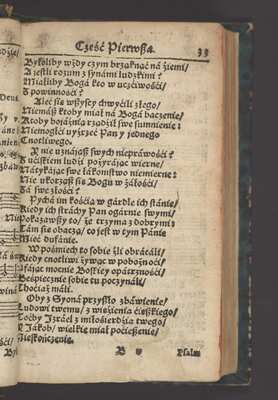 Cześć Pierwsza. 33
Byłoliby wżdy czym brząknąć ná źiemi/
A jestli rozum z synámi ludzkiemi?
Miałliby Bogá kto w uczćiwośći/
Z powinnośći?
Aleć się wszyscy chwyćili złego/
Niemász ktoby miał ná Bogá baczenie/
Ktoby bojáźnią rządźił swe sumnienie:
Niemogłći uyźrzeć Pan y jednego
Cnotliwego.
Y nie uznájąsz swych nieprawośći?
Z ućiskiem ludźi pożyráiąc wierne/
Nátykáiąc swe łákomstwo niemierne:
Nie ukorząsz się Bogu w żáłośći/
Zá swe złośći?
Pychá im kośćią w gárdle ich stánie/
Kiedy ich stráchy Pan ogárnie swymi/
Pokazawszy to/ że trzyma z dobrymi:
Tám się obaczą/ co jest w tym Pánie
Mieć dufánie.
W pośmiech to sobie źli obrácáli/
Kiedy cnotliwi żywąc w pobożnośći/
jáiąc mocnie Boskiey opátrznośći/
Bespiecznie sobie tu poczynáli/
Choćiaż máli.
Oby z Syoná przyszło zbáwienie/
Ludowi twemu/ z więźienia ćięszkiego/
Toćby Izráel z miłośierdźia twego/
Y Jákob/ wielkie miał poćieszenie/
Nieskończenie.
B v Psalm